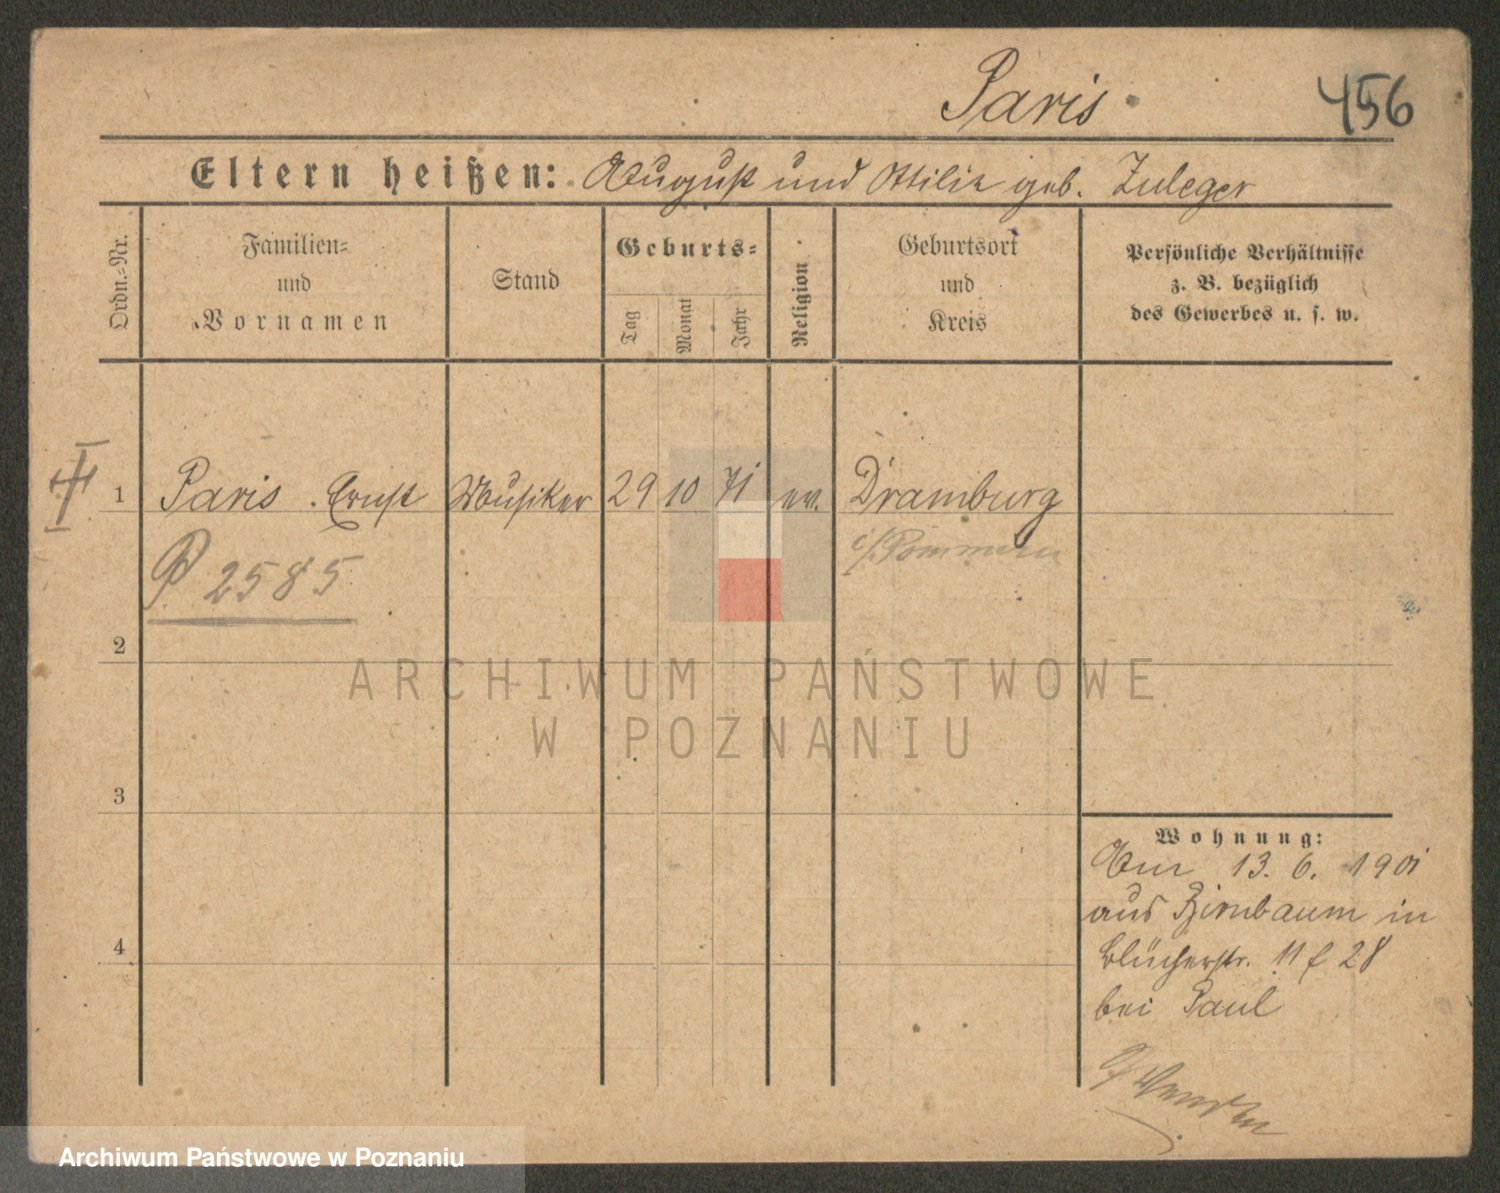 Paris
456
Eltern heißen: August und Ottilie geb. Zuleger
Ordn.=Nr.
Familien=
und
Vornamen
Stand
Geburts=
Tag
Monat
Jahr
Religion
Geburtsort
und
Kreis
Persönliche Verhältnisse
z. B. bezüglich
des Gewerbes u. s. w.
1 Paris Ernst Musiker 29 10 71 ev. Dramburg
i/Pommern
P 2585
2
ARCHIWUM PAŃSTWOWE
W POZNANIU
3
Wohnung:
Am 13. 6. 1901
aus Birnbaum in
4
Blücherstr. 11 f 28
bei Paul
Archiwum Państwowe w Poznaniu